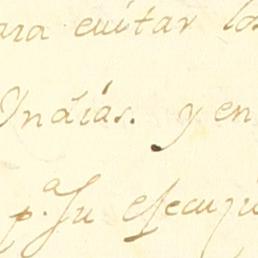 ara evitar los
Yndias. y en
p.ª su esecuzi